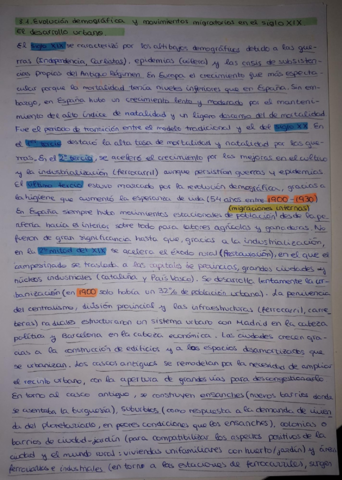 8.1 Evolución demográfica y movimientos migratorios en el siglo XIX
El desarrollo urbano.
El siglo XIX se caracterizó por los altibajos demográficos debido a las gue-
rras (Independencia, Carlistas), epidemias (cólera) y las crisis de subsistenc
ias propias del Antiguo Régimen. En Europa el crecimiento fue más especta-
cular porque la mortalidad tenía niveles inferiores que en España. Sin em-
bargo, en España hubo un crecimiento lento y moderado por el manteni-
miento del alto índice de natalidad y un ligero descenso del de mortalidad
Fue el período de transición entre el modelo tradicional y el del siglo XX. En
el 1er tercio destacó la alta tasa de mortalidad y natalidad por las gue-
rras. En el 2º tercio, se aceleró el crecimiento por las mejoras en el
y la industrialización (ferrocarril) aunque persistían guerras y epidemias.
El último tercio estuvo marcado por la revolución demográfica, gracias a
la higiene que aumentó la esperanza de vida (54 años entre 1900-1930)
(migraciones internas)
En España siempre hubo movimientos estacionales de población desde la pe-
riferia hacia el interior sobre todo para labores agrícolas y ganaderas. No
fueron de gran significancia hasta que, gracias a la industrialización
en la 2ª mitad del XIX se acelera el éxodo rural (Restauración), en el que el
campesinado se traslada a las capitales de provincias, grandes ciudades y
núcleos industriales (Cataluña y País Vasco). Se desarrolló lentamente la ur-
banización (en 1900 solo había un 32% de población urbana). La pervivencia
del centralismo, división provincial y las infraestructuras (ferrocarril, carre-
teras) radiales estructuraron un sistema urbano con Madrid en la cabeza
política y Barcelona en la cabeza económica. Las ciudades crecen gra-
cias a la construcción de edificios y a los espacios desamortizados que
se urbanizan. Los cascos antiguos se remodelan por la necesidad de ampliar
el recinto urbano, con la apertura de grandes vías para descongestionarlo
En torno al casco antiguo, se construyen ensanches (nuevos barrios donde
se asentaba la burguesía), suburbios (como respuesta a la demanda de vivien
da del proletariado, en peores condiciones que los ensanches), colonias o
barrios de ciudad-jardín (para compatibilizar los aspectos positivos de la
ciudad y el mundo rural: viviendas unifamiliares con huerto/jardín) y
ferroviarios e industriales (en torno a las estaciones de ferrocarriles, surgen